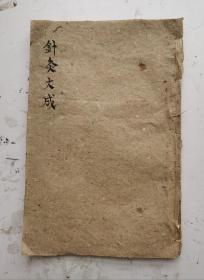 針灸大成